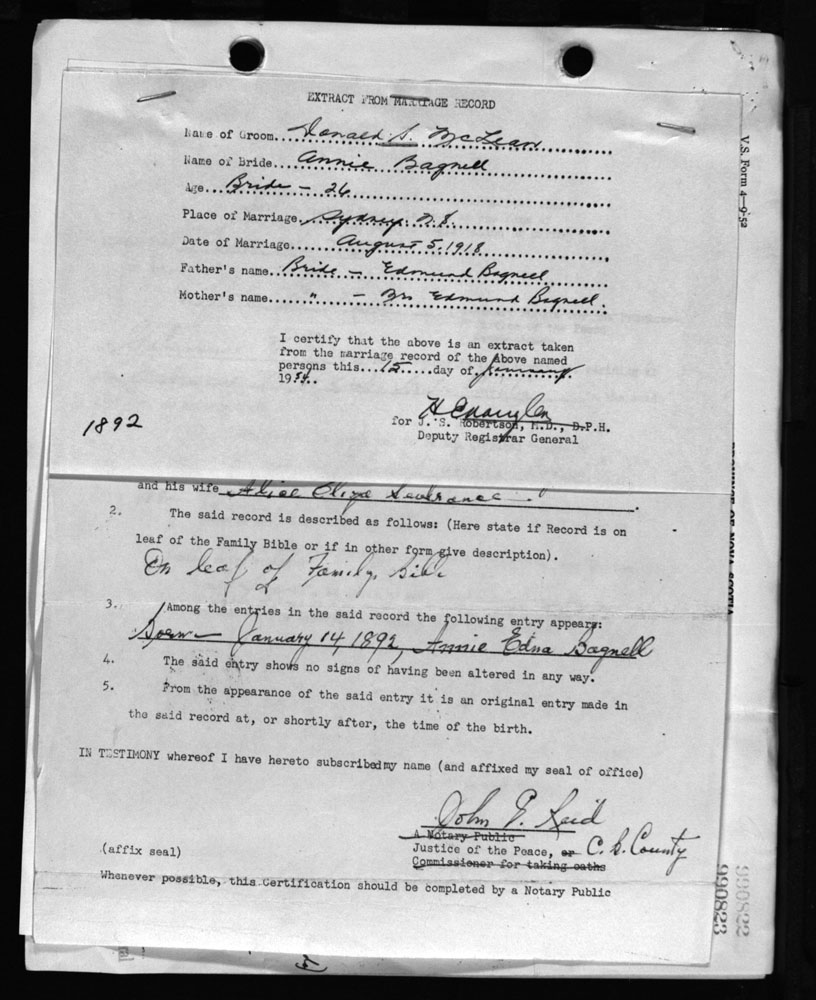 EXTRACT FROM MARRIAGE RECORD
Name of Groom... Donald S. McLean
Name of Bride... Annie Bagnell
Age... Bride - 26
Place of Marriage. Sydney. N.S.
Date of Marriage.... August 5. 1918
Father's name.. Bride - Edmund Bagnell
Mother's name..... " - Mrs Edmund Bagnell.
I certify that the above is an extract taken
from the marriage record of the above named
persons this... 15 .....day of. January.
1954..
for J. S. Robertson, M.D., D.P.H.
Deputy Registrar General
1892
and his wife Alice Eliza Severance.
2. The said record is described as follows: (Here state if Record is on
leaf of the Family Bible or if in other form give description).
On leaf of Family Bible
3. Among the entries in the said record the following entry appears:
Born - January 14 1892, Annie Edna Bagnell
4. The said entry shows no signs of having been altered in any way.
5. From the appearance of the said entry it is an original entry made in
the said record at, or shortly after, the time of the birth.
IN TESTIMONY whereof I have hereto subscribed my name (and affixed my seal of office)
A Notary Public
(affix seal)
Justice of the Peace, or C. B. County
Commissioner for taking oaths
Whenever possible, this Certification should be completed by a Notary Public
V.S. Form 4-9-52
PROVINCE OF NOVA SCOTIA
990822
990823